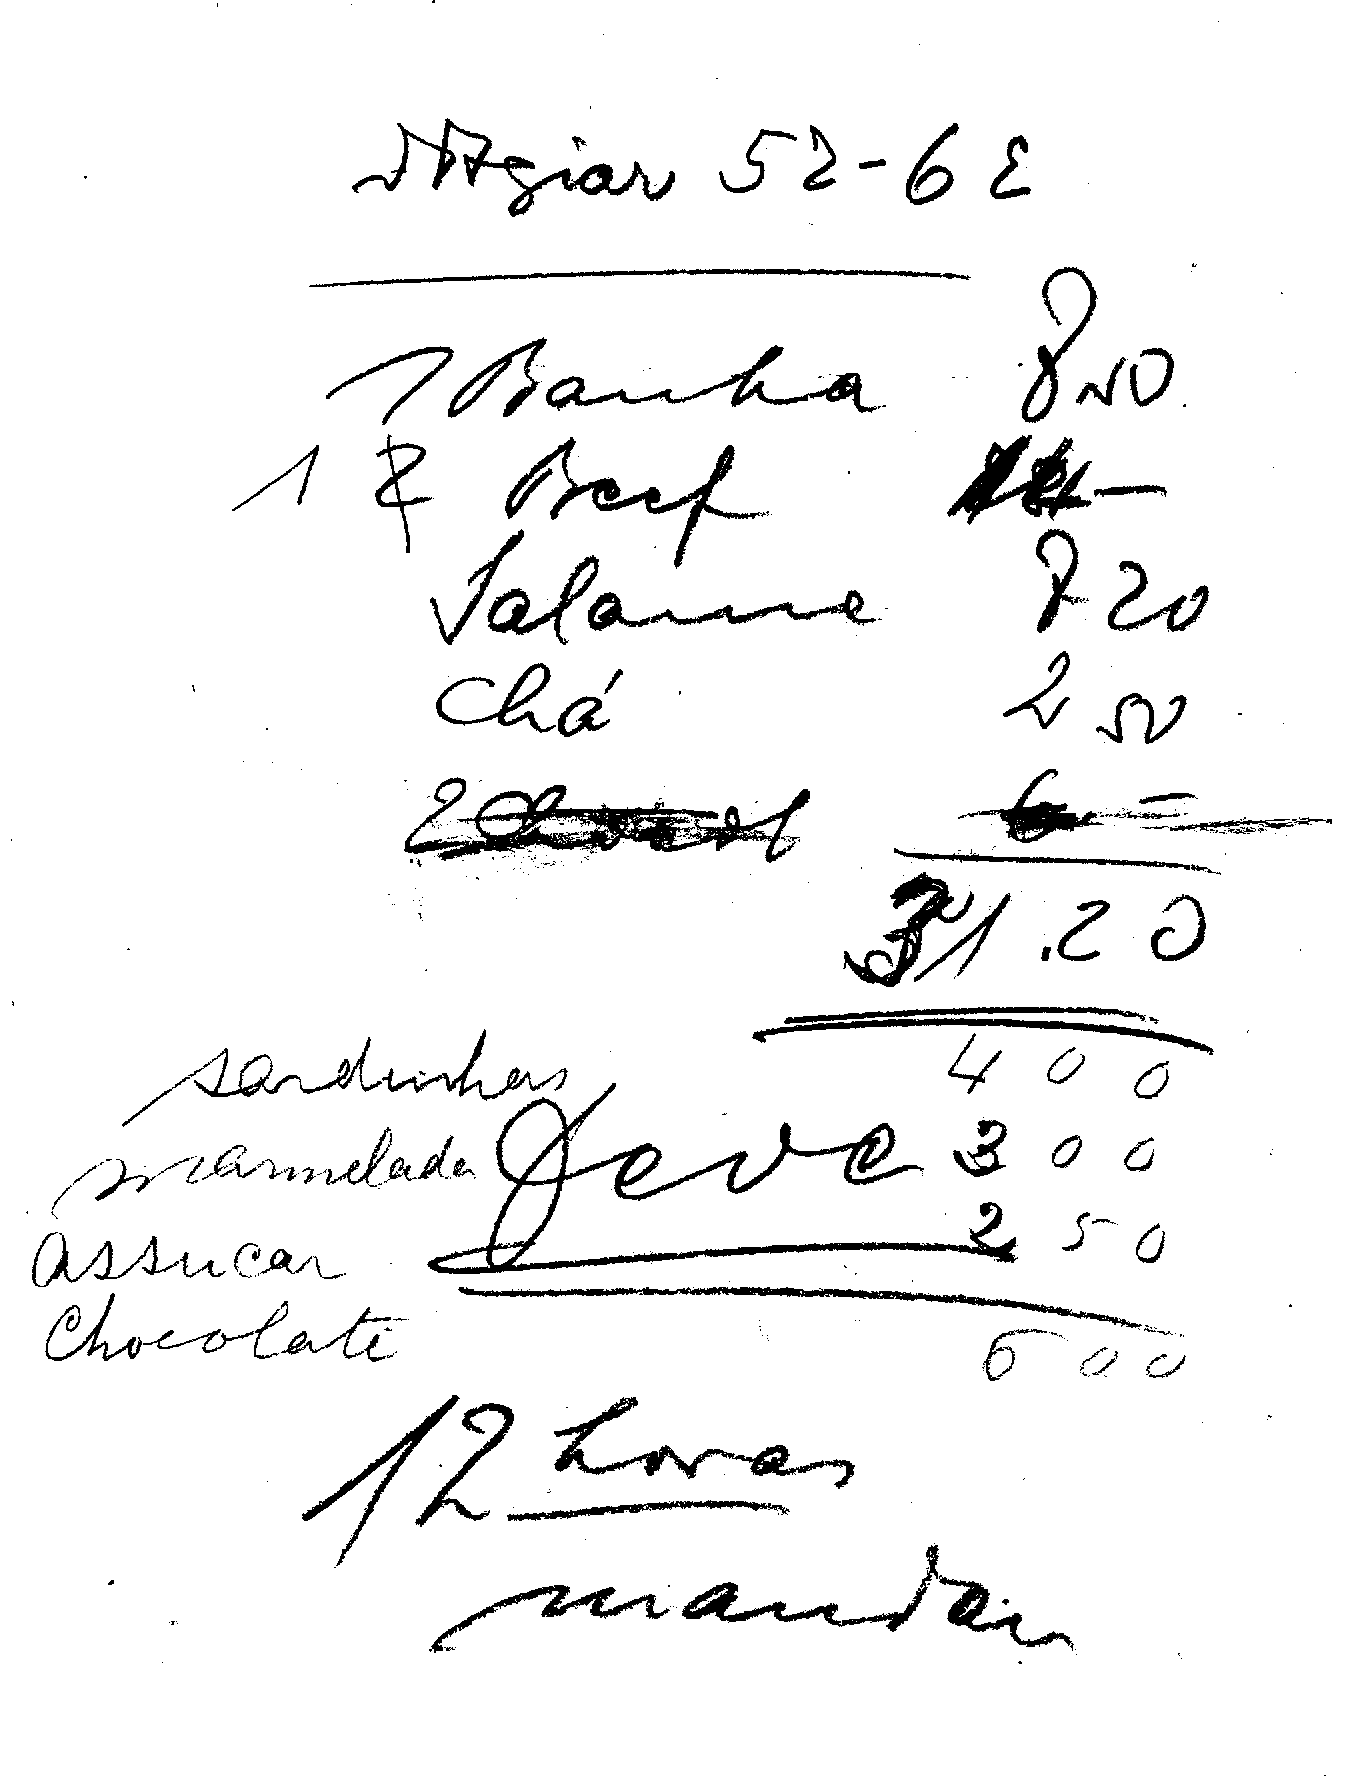 52-6E
1 Banha 8 50
1 2 Beef
Salame 7 20
Chá 2 50
2
31.20
sardinhas 4 0 0
marmelada Deve 3 0 0
Assucar 2 50
Chocolate 6 00
12 horas
mandar